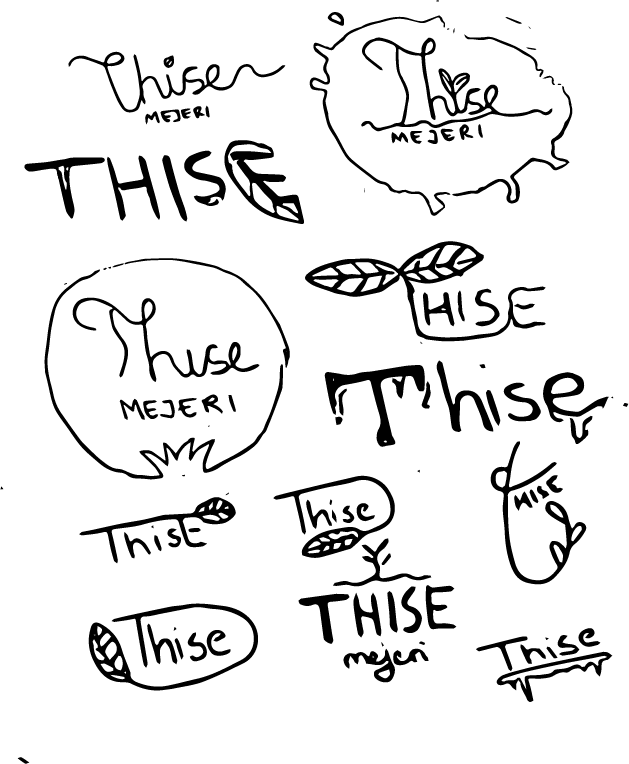 Thise
MEJERI
Thise
MEJERI
THISE
THISE
Thise
MEJERI
Thise
ThisE
Thise
THISE
THISE
mejeri
Thise
Thise